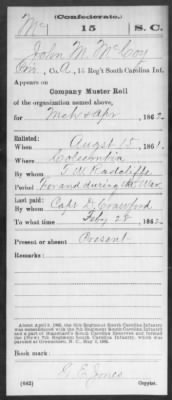 (Confederate.)
M 15 S. C.
John M. McCoy
Pvt., Co. A, 15 Reg't South Carolina Inf.
Appears on
Company Muster Roll
of the organization named above,
for Mch & Apr, 1862.
Enlisted:
When August 15, 1861.
Where Columbia
By whom T. W. Radcliffe
Period For and during the War
Last paid:
By whom Capt D. Crawford
To what time Feby 28, 1862.
Present or absent Present
Remarks:
Book mark:
(642) G. E. Jones Copyist.